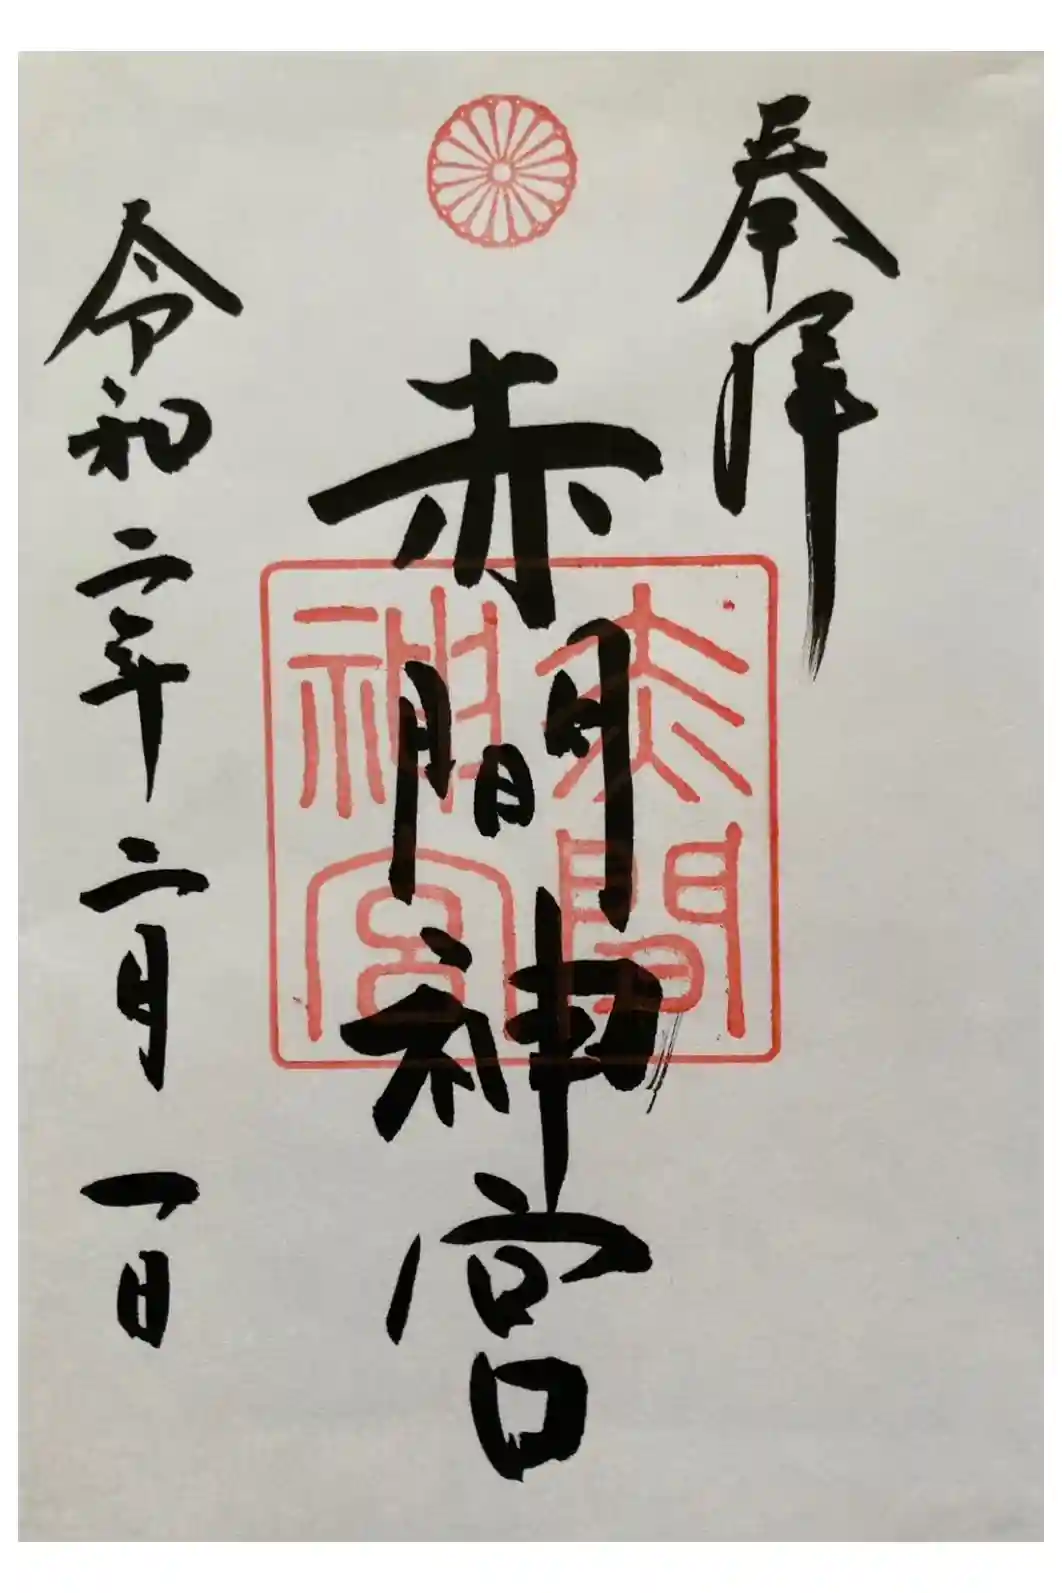 奉拝
赤間神宮
赤間
神宮
令和二年二月一日